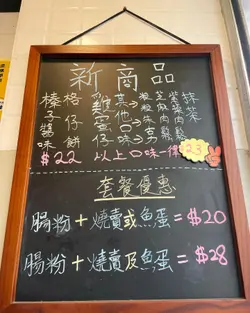 新商品
格仔餅
榛子醬味
$22
雞蛋仔
其他口味
芝麻肉鬆
紫菜肉鬆
抹茶
以上口味一律
23
套餐優惠
腸粉+燒賣或魚蛋=$20
腸粉+燒賣及魚蛋=$28